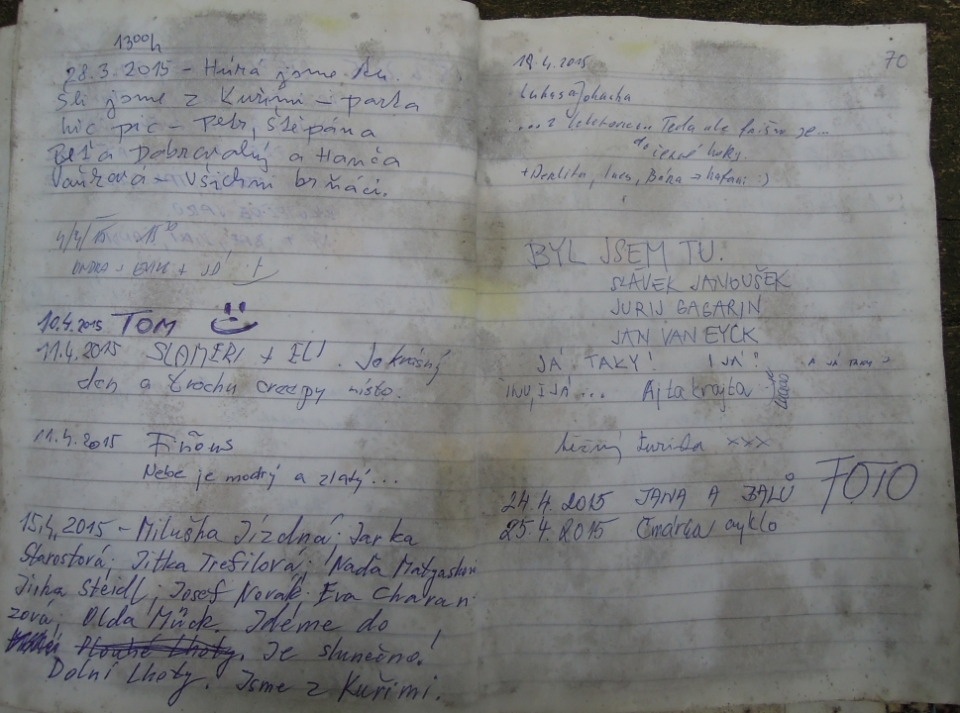 13⁰⁰h
28.3.2015 – Hurá jsme tu.
Šli jsme z Kuřimi – parta
hic pic – Petr, Štěpána
Beťa Dobrovolný a Hanča
Vaňková – všichni brňáci.
4/4/
ONDRA + + JÁ
10.4.2015 TOM
11.4.2015 SLAMERI + ELI. Je krásný
den a trochu creepy místo.
11.4.2015 Fiňous
Nebe je modrý a zlatý...
15.4.2015 – Miluška Jízdná; Jarka
Starostová; Jitka Trefilová; Naďa Matyaskou
Jirka Steidl; Josef Novák; Eva Charan
zová; Olda Můck. Jdeme do
Dlouhé Lhoty. Je slunečno!
Dolní Lhoty. Jsme z Kuřimi.
70
.4.2015
Lukas
...z Teda ale frišno je...
do černé hory.
+ , , Bára → hafani :)
BYL JSEM TU.
SLÁVEK JANOUŠEK
JURIJ GAGARIN
JAN VAN EYCK
JÁ TAKY! I JÁ! A JÁ TAKY
INU, I JÁ... Ajta krajta
běžný turista xxx
24.4.2015 JANA A BALŮ FOTO
25.4.2015 Čmárka cyklo